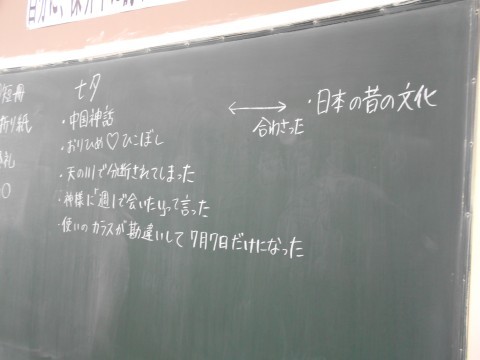 七夕
・中国神話
・おりひめ♡ひこぼし
・天の川で分断されてしまった
・神様に「週1で会いたい」って言った
・使いのカラスが勘違いして7月7日だけになった
⟷
合わさった
・日本の昔の文化
短冊
折り紙
札
○